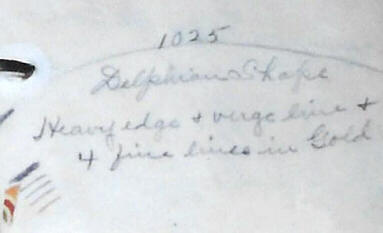 1025
Delphian Shape
Heavy edge + verge line +
4 fine lines in Gold